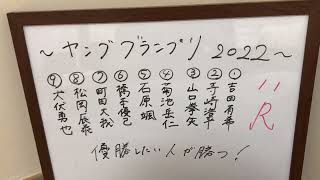 ～ヤンググランプリ 2022～
11R
①吉田有希
②寺崎浩平
③山口拳矢
④菊池岳仁
⑤石原颯
⑥橋本優己
⑦町田太我
⑧松岡辰泰
⑨犬伏勇也
優勝したい人が勝つ!